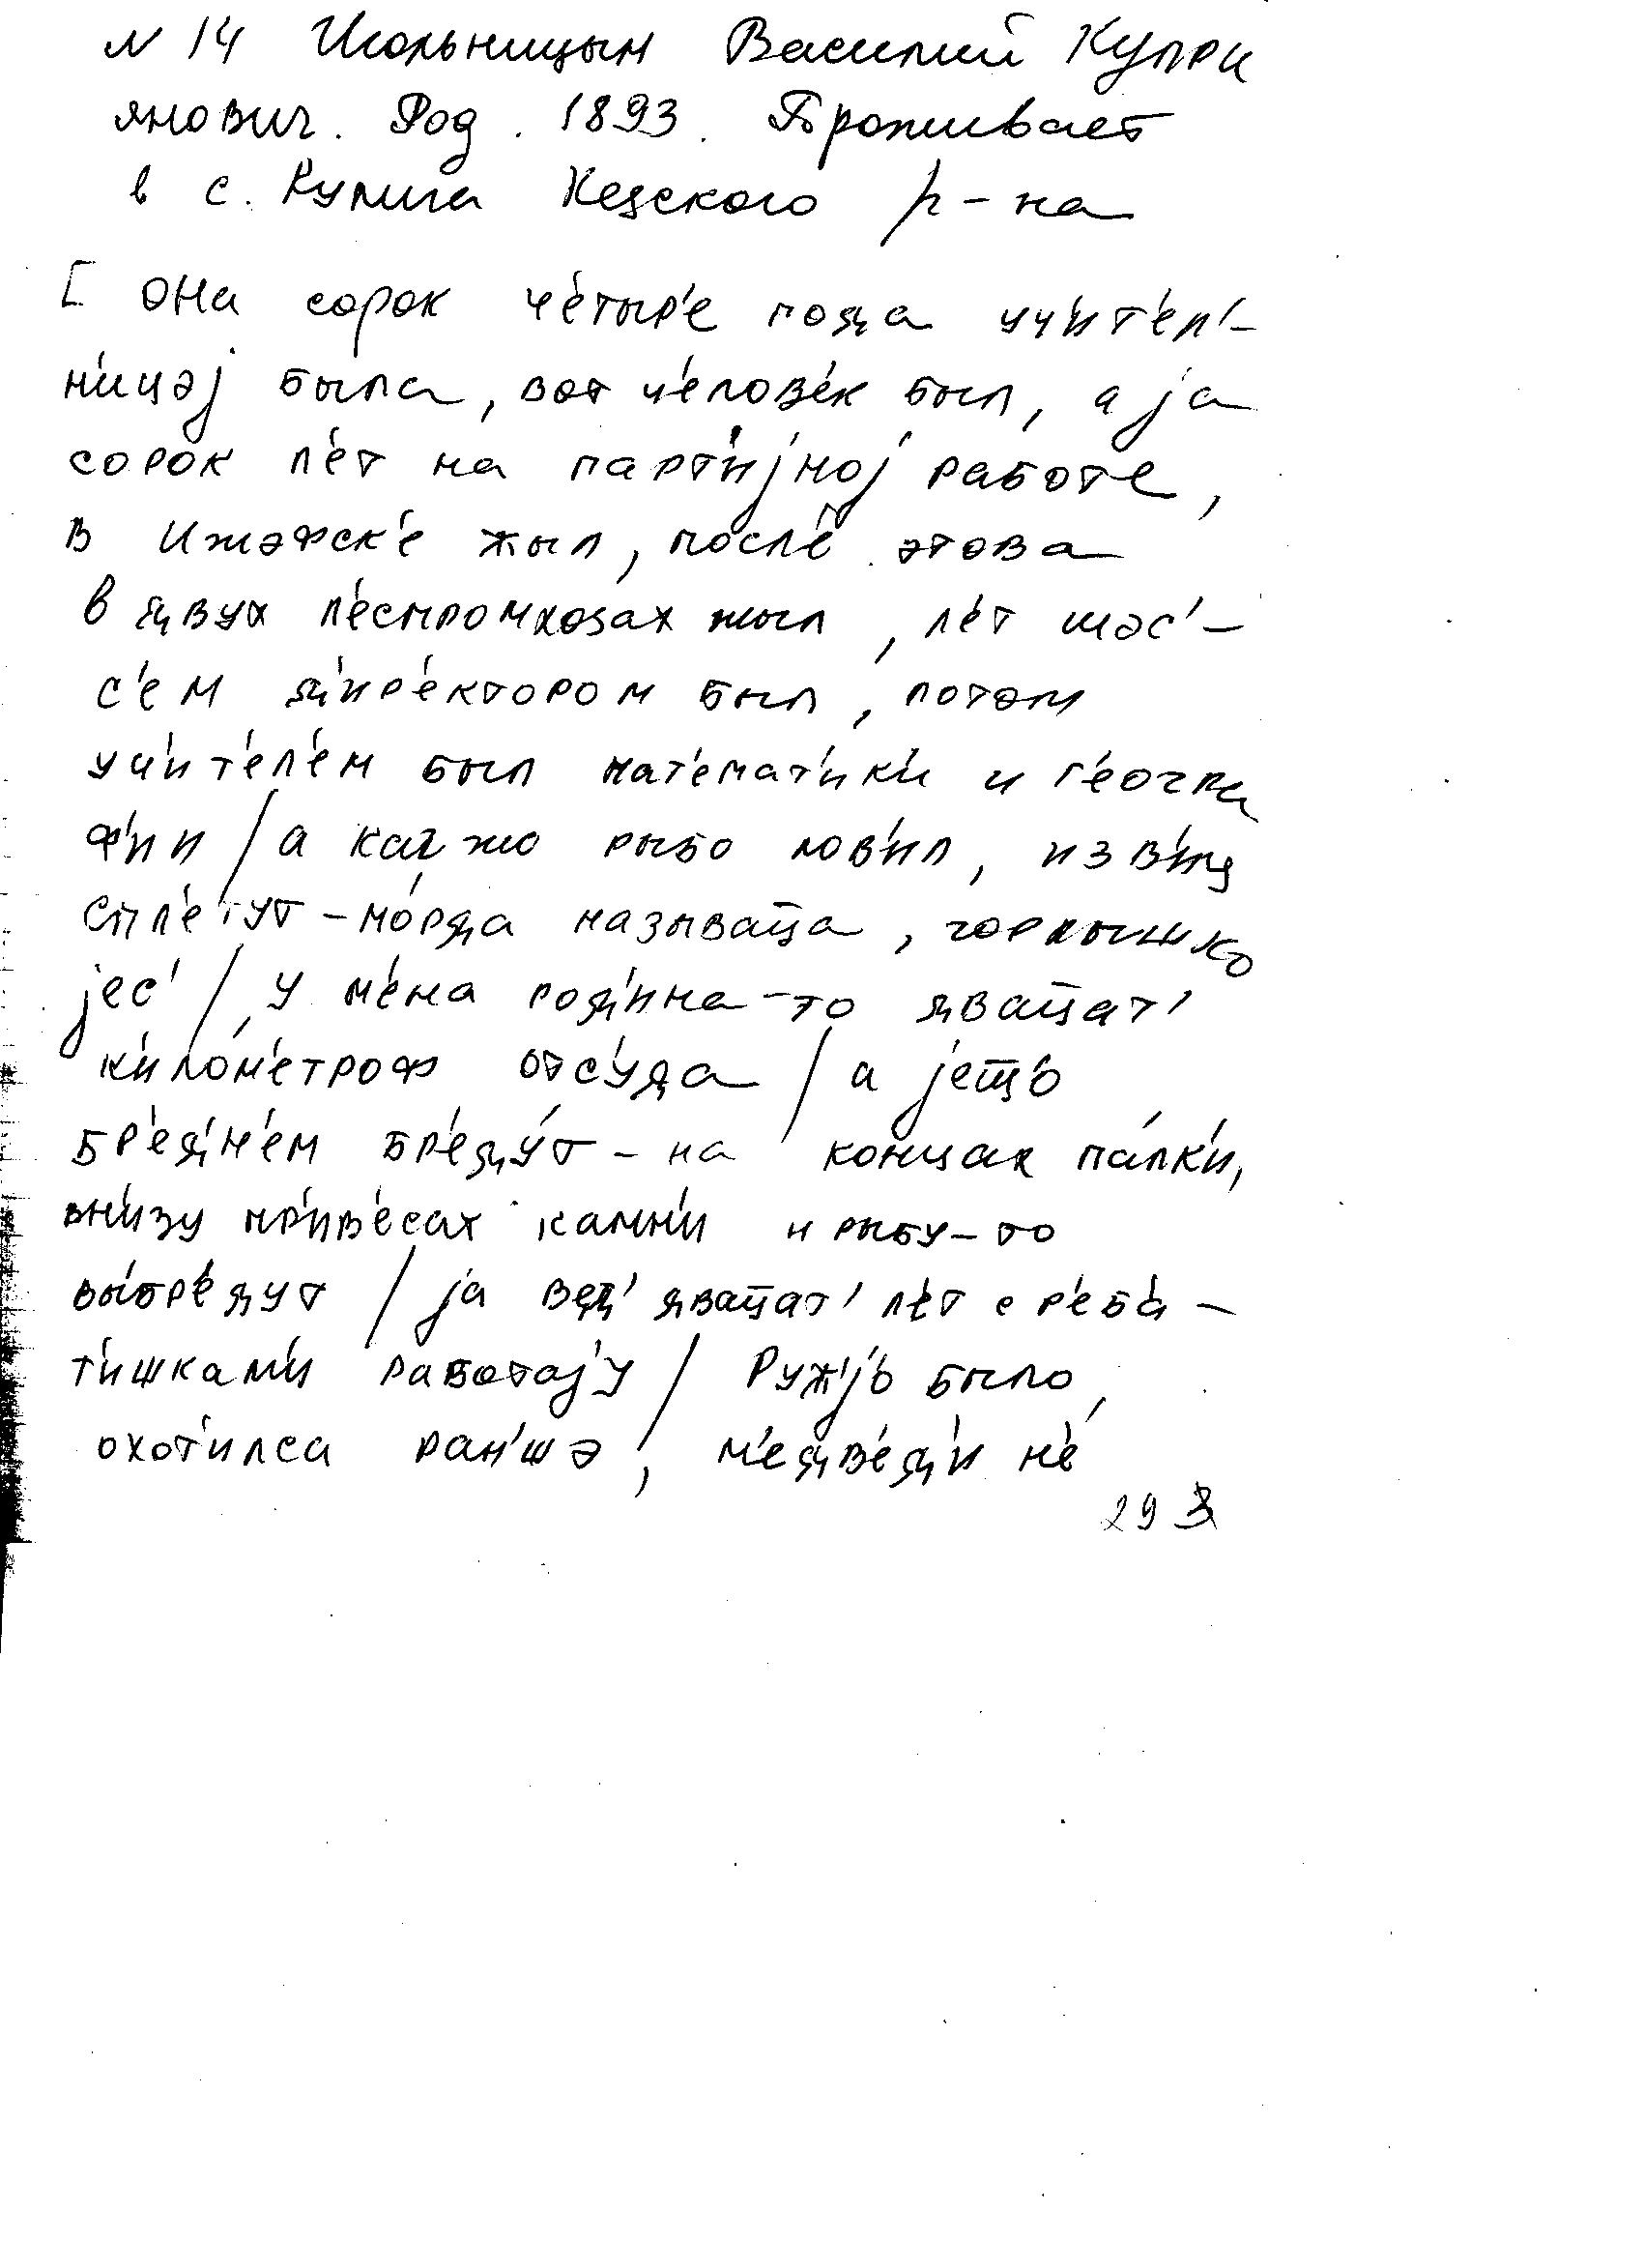 N 14 Игольницын Василий Купри
янович. Род. 1893. Проживает
в с. Кулига Кезского р-на
[ она сорок ч'етыр'е года уч'ит'ел'-
н'ицэj была, вот ч'елов'ек был, а jа
сорок л'ет на парт'иjноj работе,
в Ижэфск'е жыл, посл'е этова
в двух л'еспромхозах жыл, л'ет шэс'-
с'ем д'ир'ектором был, потом
уч'ит'ел'ем был мат'емат'ик'и и г'еогра
ф'ии / а как жо рыбо лов'ил, из виц
спл'етут - морда называц̄а, горлышко
jес' / у м'ена род'ина-то двац̄ат'
к'илом'етроф отс'уда / а jещ'о
бр'едн'ем бр'едут - на концах палк'и,
вн'изу пр'ив'есах камн'и и рыбу-то
выбр'едут / jа вед' двац̄ат' л'ет с р'еб'а-
т'ишкам'и работаjу / Руж'jо было,
охот'илса ран'шэ, м'едв'ед'и н'е
293